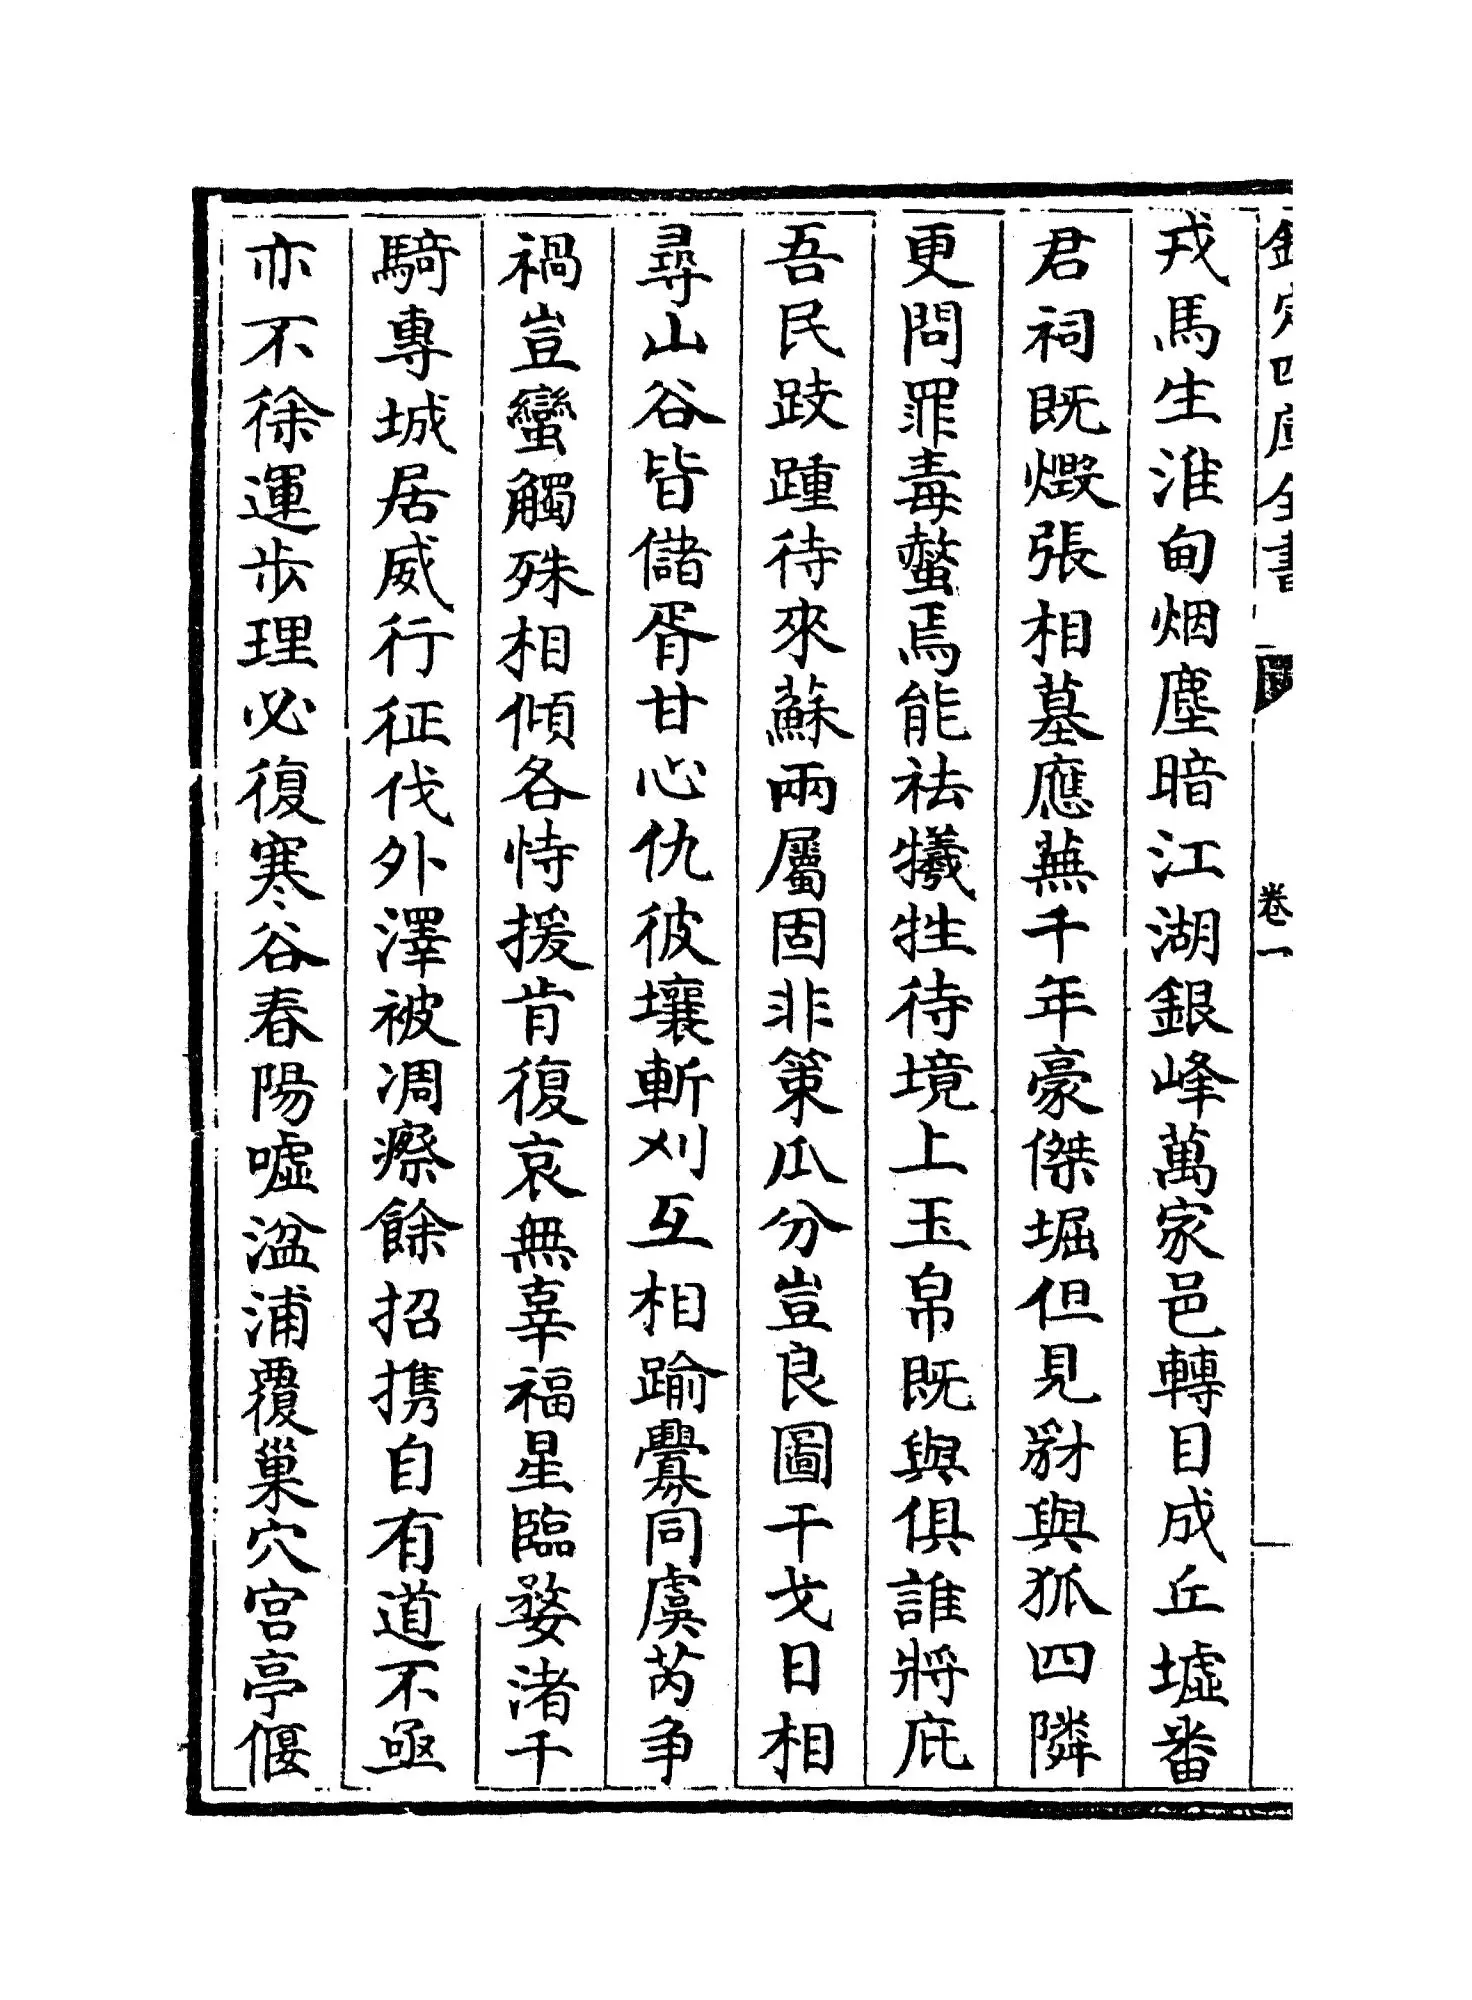 欽定四庫全書
卷一
戎馬生淮甸烟塵暗江湖銀峰萬家邑轉目成丘墟番
君祠既燬張相墓應蕪千年豪傑堀但見豺與狐四隣
更問罪毒螫焉能祛犧牲待境上玉帛既與俱誰將庇
吾民跂踵待來蘇兩屬固非策瓜分豈良圖干戈日相
尋山谷皆儲胥甘心仇彼壤斬刈互相踰釁同虞芮争
禍豈蠻觸殊相傾各恃援肯復哀無辜福星臨婺渚千
騎專城居威行征伐外澤被凋瘵餘招携自有道不亟
亦不徐運步理必復寒谷春陽嘘湓浦覆巢穴宫亭偃